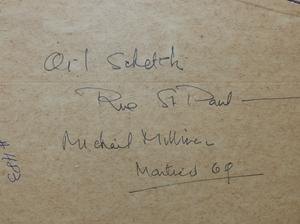 Oil Sketch
Rue St Paul
Michael Milliner
Montreal 69
#1193